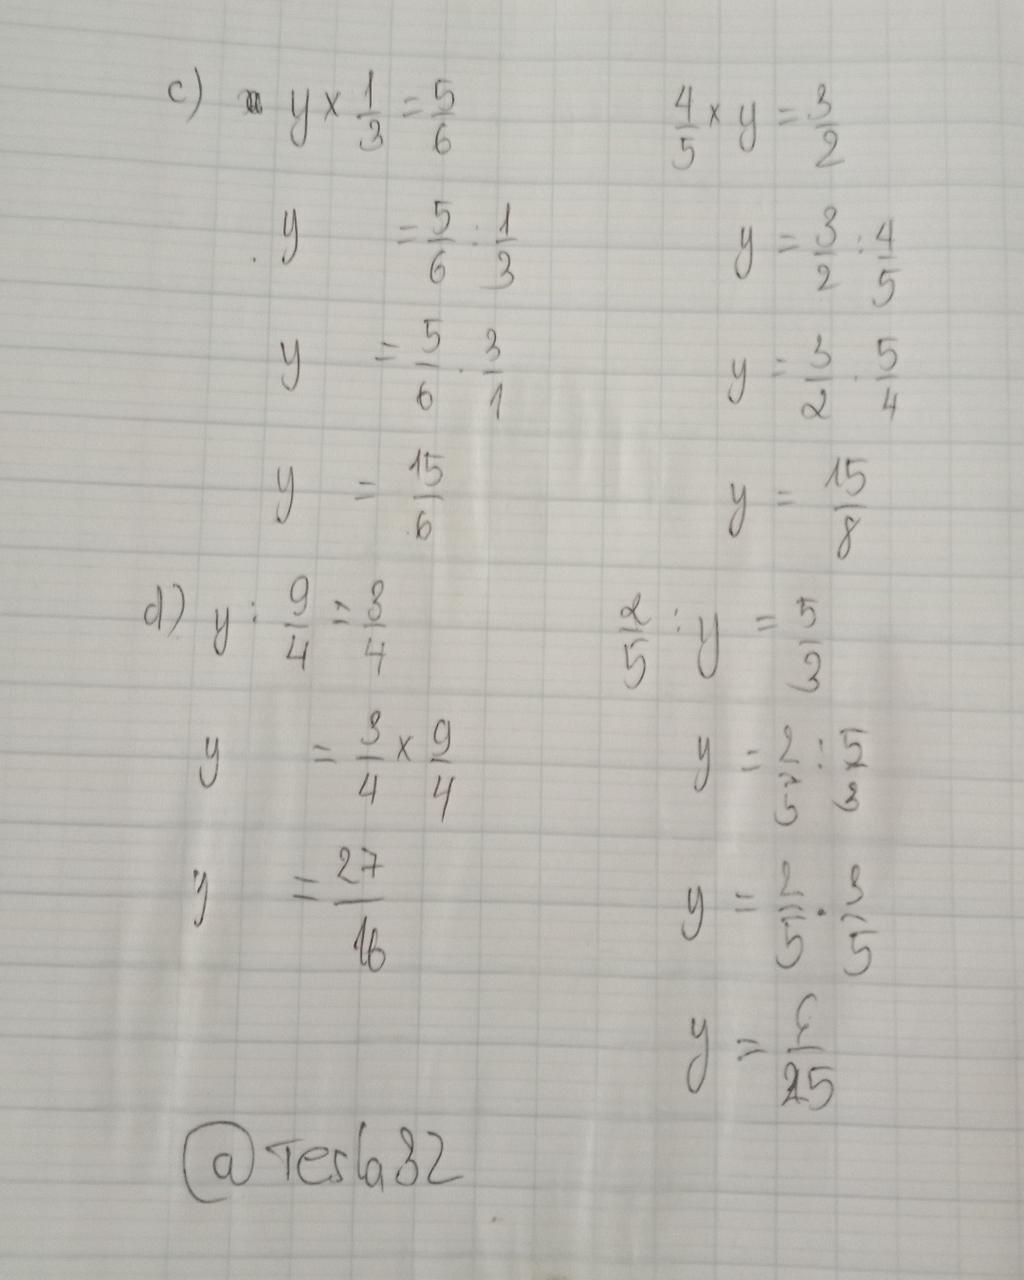 c) y × 1/3 = 5/6
y = 5/6 : 1/3
y = 5/6 · 3/1
y = 15/6
4/5 × y = 3/2
y = 3/2 : 4/5
y = 3/2 · 5/4
y = 15/8
d) y : 9/4 = 3/4
y = 3/4 × 9/4
y = 27/16
2/5 : y = 5/3
y = 2/5 : 5/3
y = 2/5 · 3/5
y = 6/25
@Tesla32